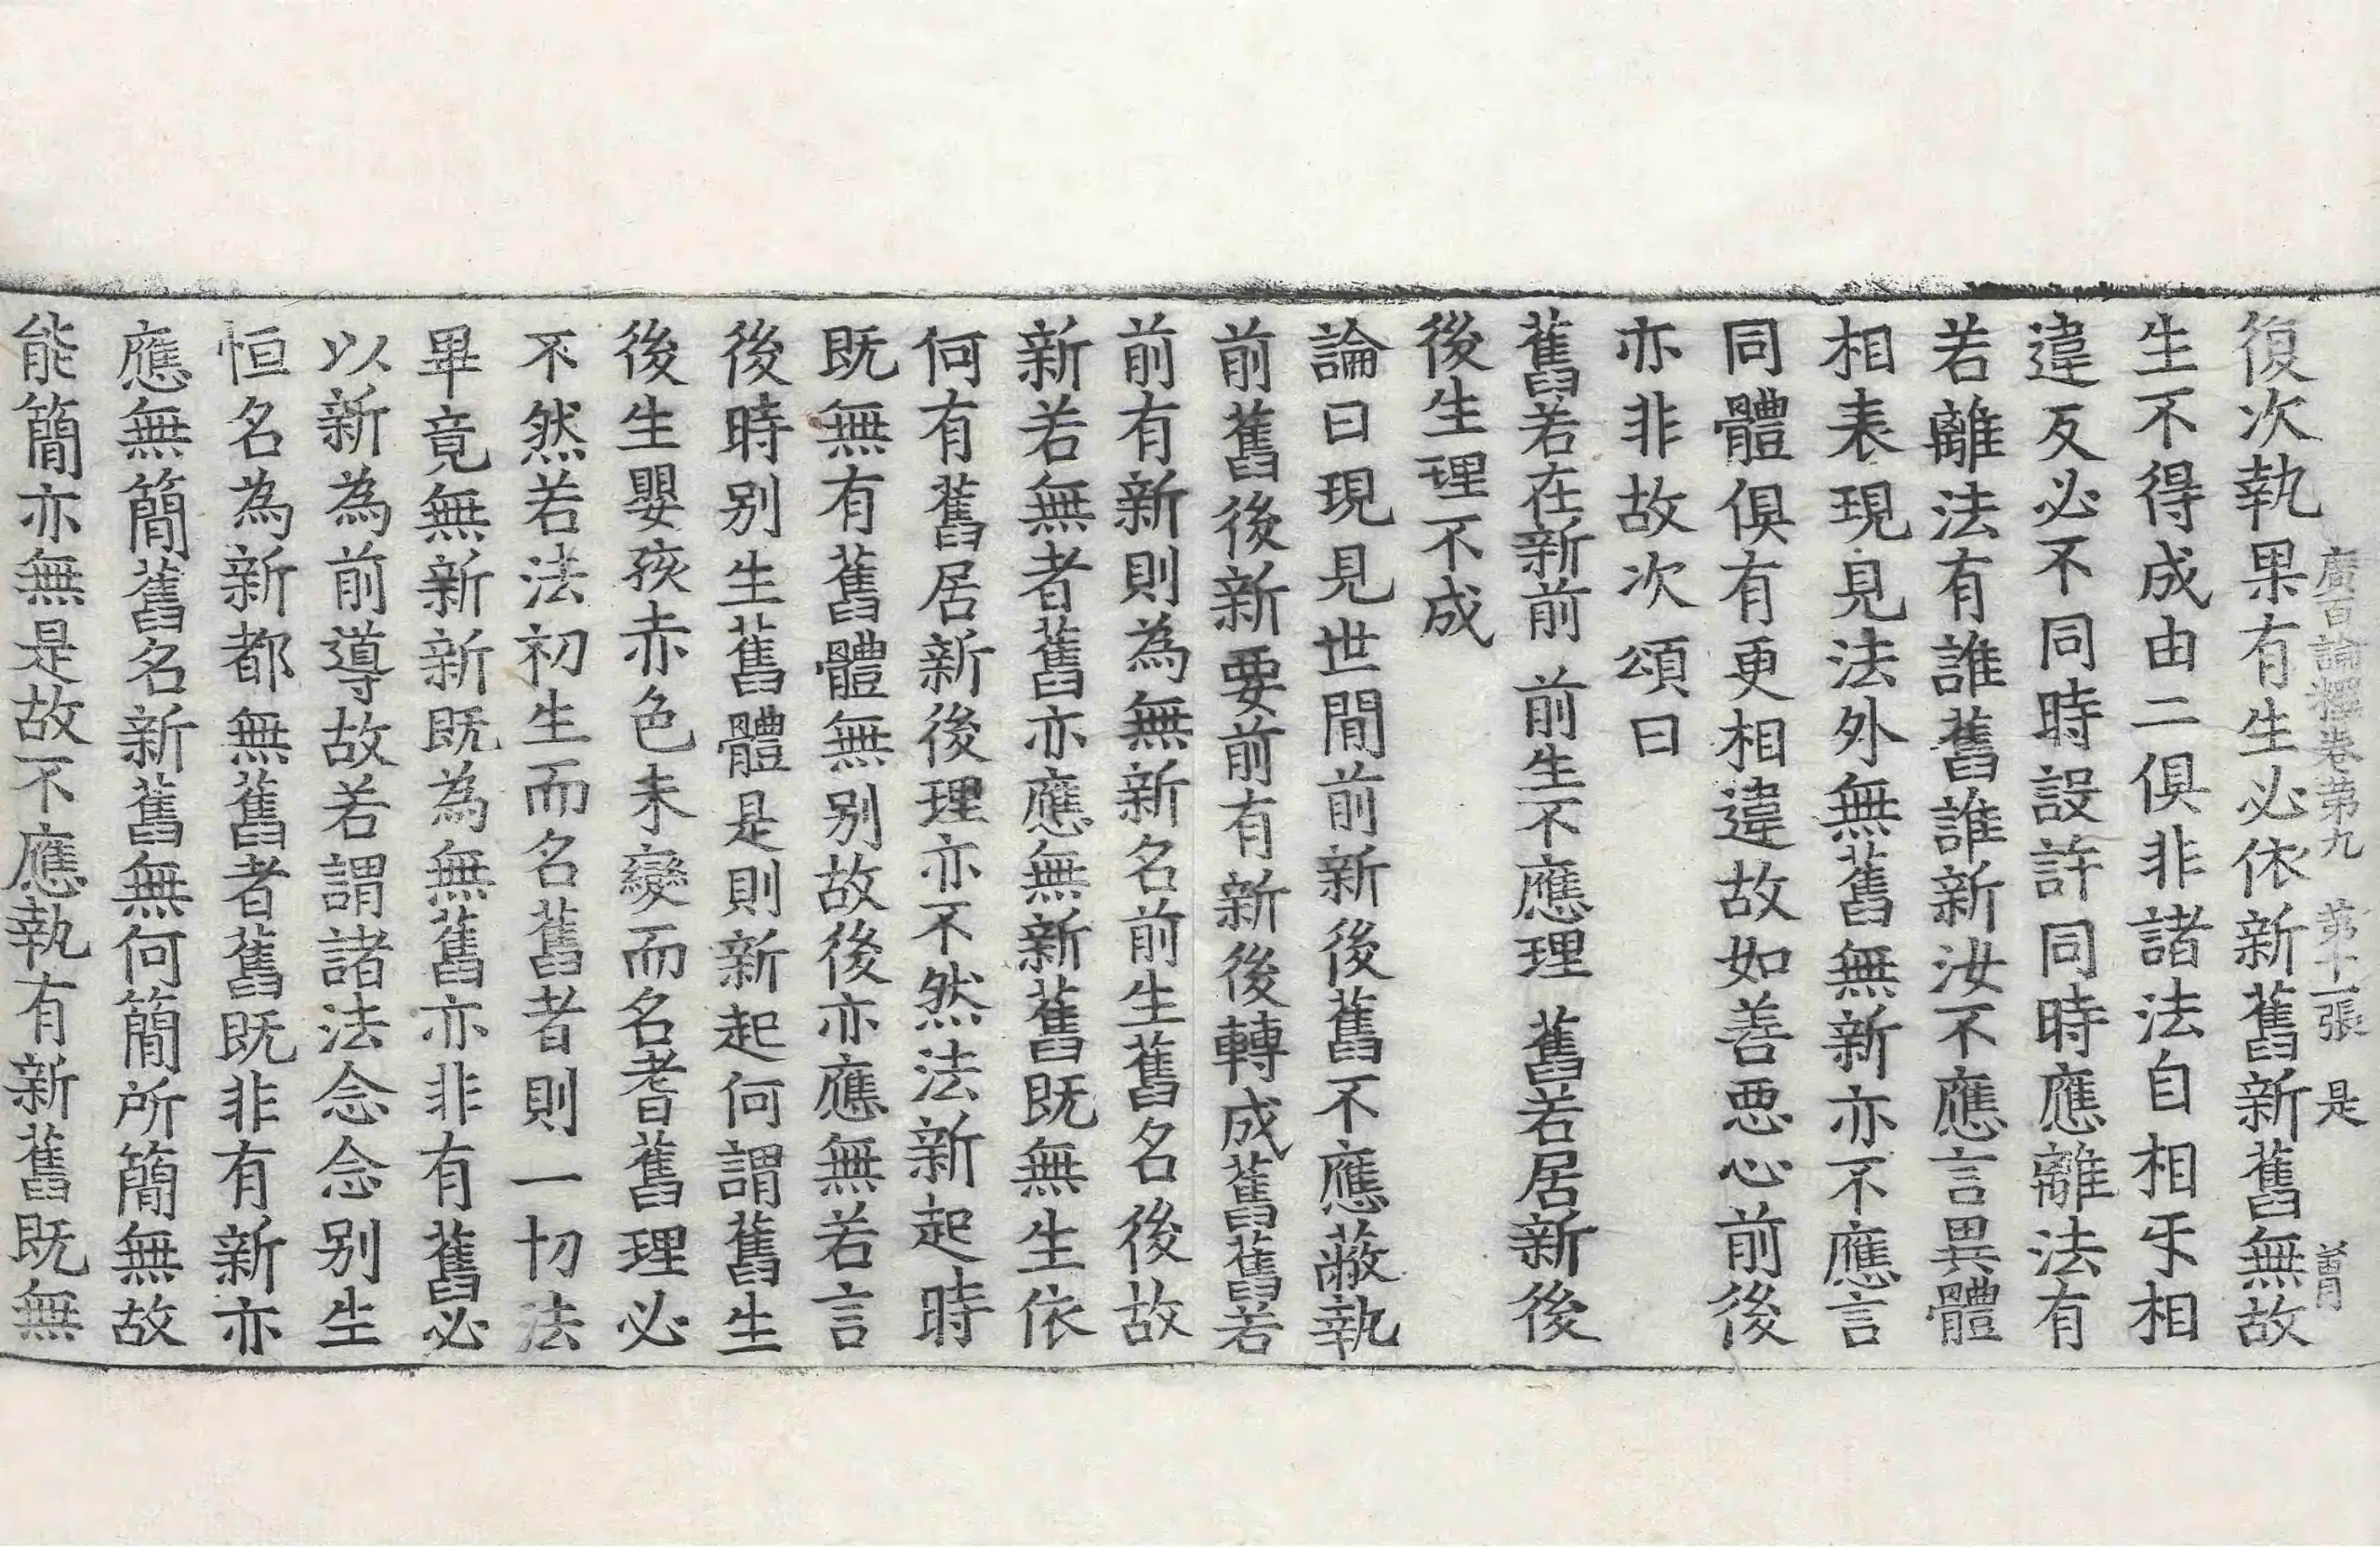 廣百論釋卷第九　第十二張　是
復次執果有生必依新舊新舊無故
生不得成由二俱非諸法自相㸦相
違反必不同時設許同時應離法有
若離法有誰舊誰新汝不應言異體
相表現見法外無舊無新亦不應言
同體俱有更相違故如善惡心前後
亦非故次頌曰
舊若在新前　前生不應理　舊若居新後
後生理不成
論曰現見世間前新後舊不應蔽執
前舊後新要前有新後轉成舊舊若
前有新則為無新名前生舊名後故
新若無者舊亦應無新舊既無生依
何有舊居新後理亦不然法新起時
既無有舊體無別故後亦應無若言
後時別生舊體是則新起何謂舊生
後生嬰孩赤色未變而名耆舊理必
不然若法初生而名舊者則一切法
畢竟無新新既為無舊亦非有舊必
以新為前導故若謂諸法念念別生
恒名為新都無舊者舊既非有新亦
應無簡舊名新舊無何簡所簡無故
能簡亦無是故不應執有新舊既無